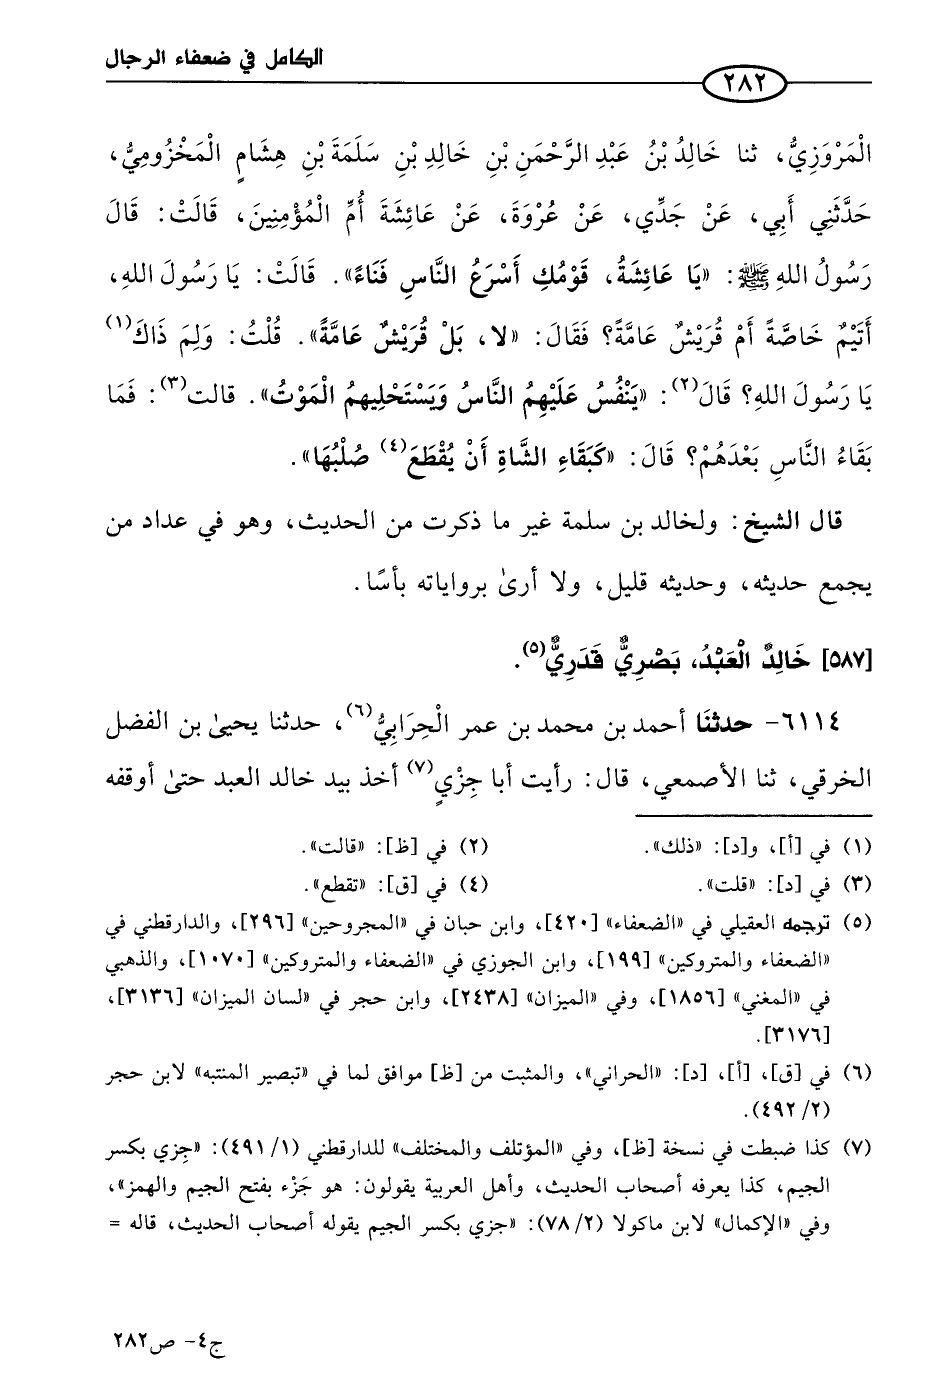 الكامل في ضعفاء الرجال
٢٨٢
الْمَرْوَزِيُّ، ثنا خَالِدُ بْنُ عَبْدِ الرَّحْمَنِ بْنِ خَالِدِ بْنِ سَلَمَةَ بْنِ هِشَامٍ الْمَخْزُومِيُّ،
حَدَّثَنِي أَبِي، عَنْ جَدِّي، عَنْ عُرْوَةَ، عَنْ عَائِشَةَ أُمِّ الْمُؤْمِنِينَ، قَالَتْ: قَالَ
رَسُولُ اللهِ ﷺ: «يَا عَائِشَةُ، قَوْمُكِ أَسْرَعُ النَّاسِ فَنَاءً». قَالَتْ: يَا رَسُولَ اللهِ،
أَتَيْمٌ خَاصَّةً أَمْ قُرَيْشٌ عَامَّةً؟ فَقَالَ: «لا، بَلْ قُرَيْشٌ عَامَّةً». قُلْتُ: وَلِمَ ذَاكَ(١)
يَا رَسُولَ اللهِ؟ قَالَ(٢): «يَنْفُسُ عَلَيْهِمُ النَّاسُ وَيَسْتَحْلِيهِمُ الْمَوْتُ». قالت(٣): فَمَا
بَقَاءُ النَّاسِ بَعْدَهُمْ؟ قَالَ: «كَبَقَاءِ الشَّاةِ أَنْ يُقْطَعَ(٤) صُلْبُهَا».
قال الشيخ: ولخالد بن سلمة غير ما ذكرت من الحديث، وهو في عداد من
يجمع حديثه، وحديثه قليل، ولا أرىٰ برواياته بأسًا.
[٥٨٧] خَالِدٌ الْعَبْدُ، بَصْرِيٌّ قَدَرِيٌّ(٥).
٦١١٤- حدثنَا أحمد بن محمد بن عمر الْحِرَابِيُّ(٦)، حدثنا يحيىٰ بن الفضل
الخرقي، ثنا الأصمعي، قال: رأيت أبا جِزْيٍ(٧) أخذ بيد خالد العبد حتىٰ أوقفه
(١) في [أ]، و[د]: «ذلك». (٢) في [ظ]: «قالت».
(٣) في [د]: «قلت». (٤) في [ق]: «تقطع».
(٥) ترجمه العقيلي في «الضعفاء» [٤٢٠]، وابن حبان في «المجروحين» [٢٩٦]، والدارقطني في
«الضعفاء والمتروكين» [١٩٩]، وابن الجوزي في «الضعفاء والمتروكين» [١٠٧٠]، والذهبي
في «المغني» [١٨٥٦]، وفي «الميزان» [٢٤٣٨]، وابن حجر في «لسان الميزان» [٣١٣٦]،
[٣١٧٦].
(٦) في [ق]، [أ]، [د]: «الحراني»، والمثبت من [ظ] موافق لما في «تبصير المنتبه» لابن حجر
(٢/ ٤٩٢).
(٧) كذا ضبطت في نسخة [ظ]، وفي «المؤتلف والمختلف» للدارقطني (١/ ٤٩١): «جِزي بكسر
الجيم، كذا يعرفه أصحاب الحديث، وأهل العربية يقولون: هو جَزْء بفتح الجيم والهمز»،
وفي «الإكمال» لابن ماكولا (٢/ ٧٨): «جزي بكسر الجيم يقوله أصحاب الحديث، قاله =
ج٤- ص٢٨٢